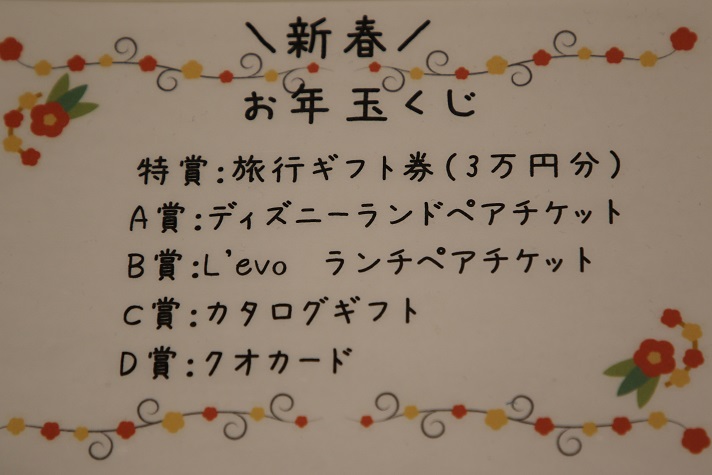 ＼新春／
お年玉くじ
特賞:旅行ギフト券(3万円分)
A賞:ディズニーランドペアチケット
B賞:L'evo　ランチペアチケット
C賞:カタログギフト
D賞:クオカード